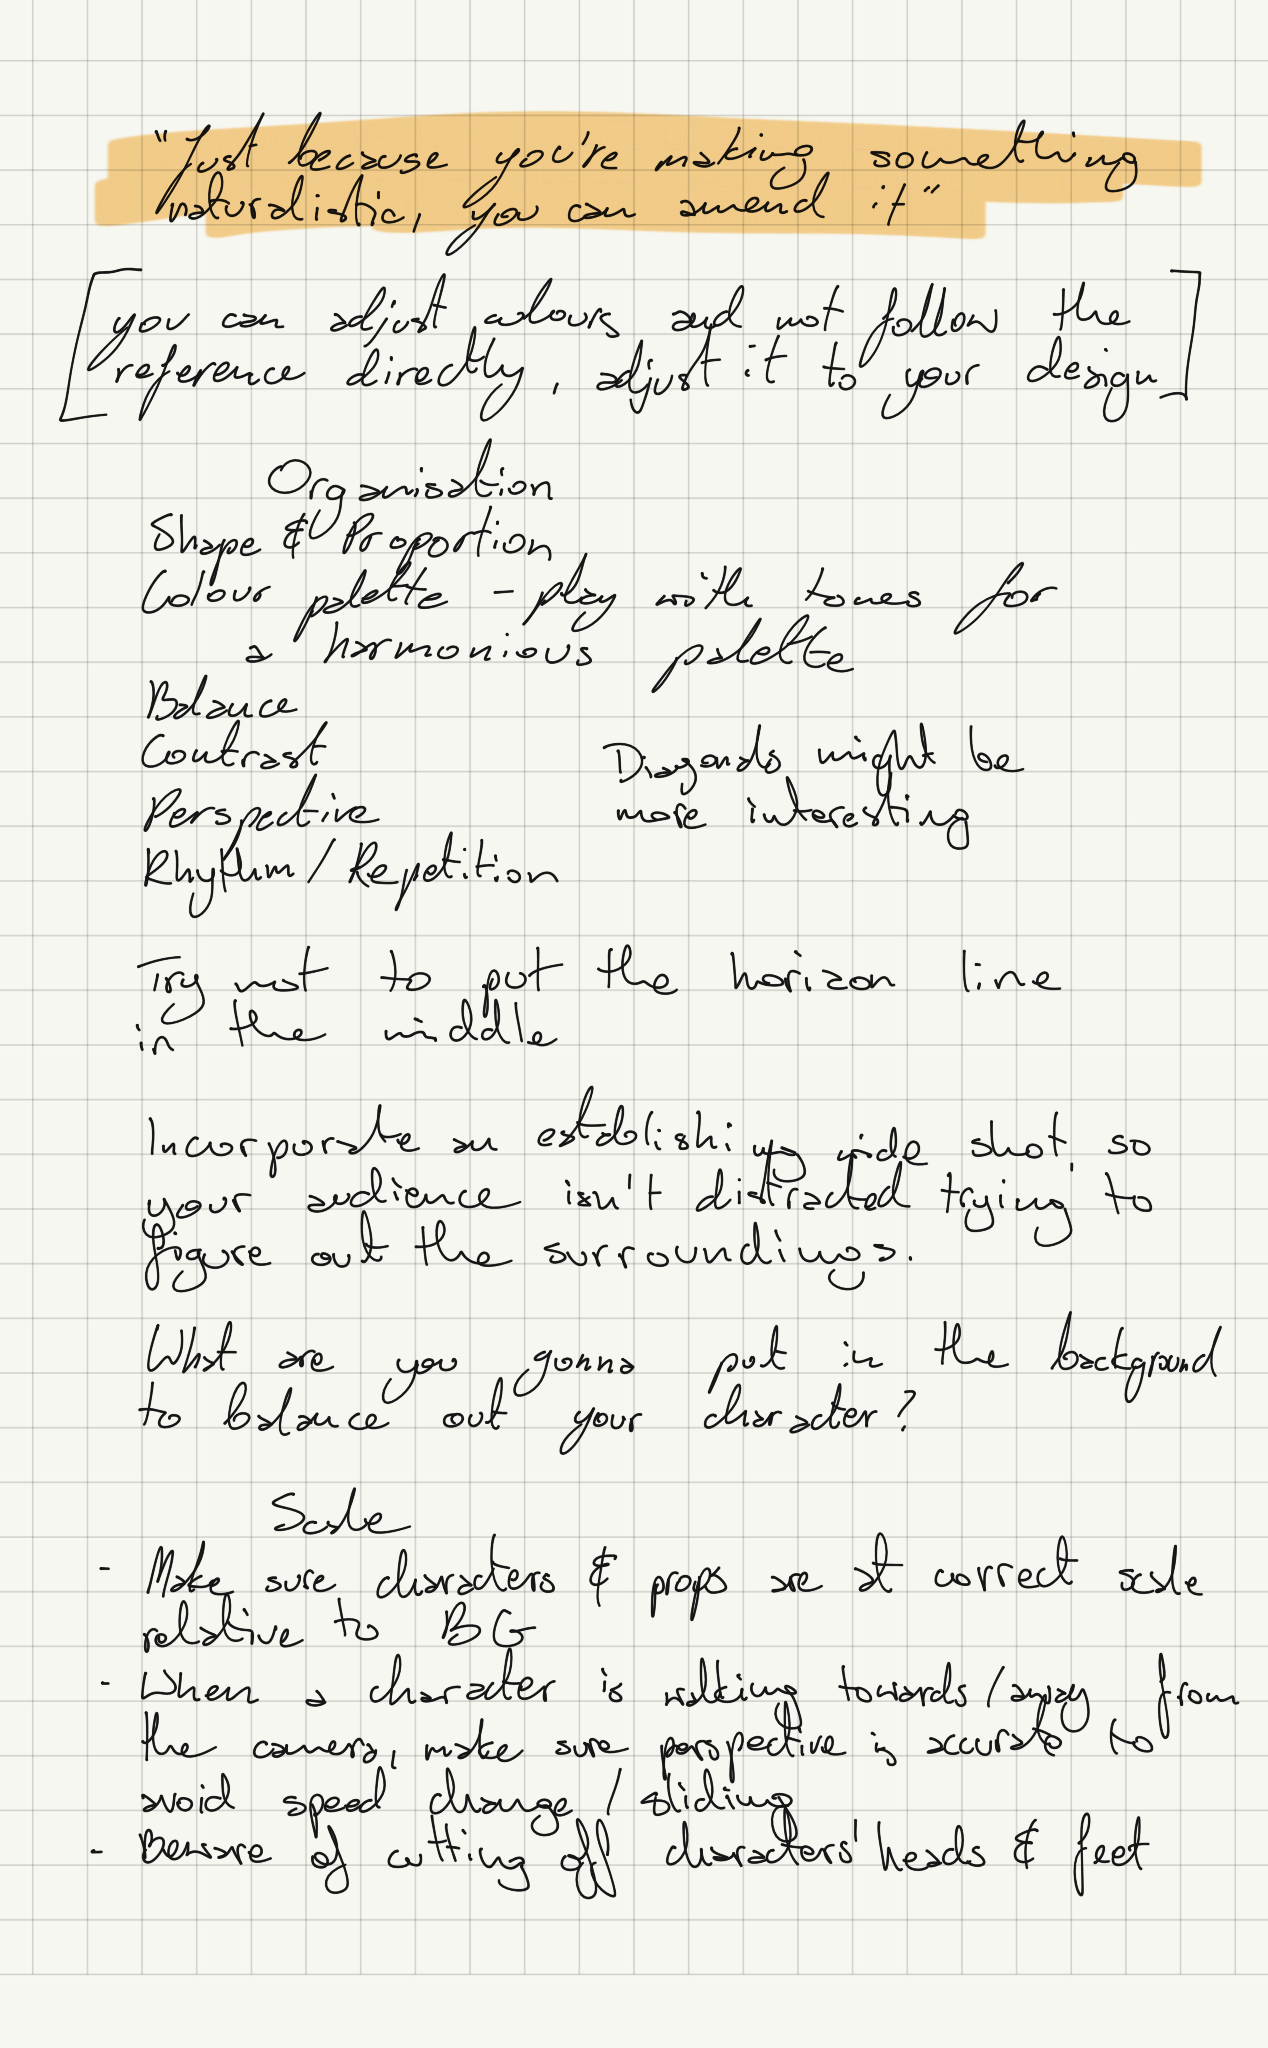 "Just because you're making something
naturalistic, you can amend it"
[you can adjust colours and not follow the
reference directly, adjust it to your design]
Organisation
Shape & Proportion
Colour palette - play with tones for
a harmonious palette
Balance
Contrast
Perspective
Rhythm / Repetition
Diagonals might be
more interesting
Try not to put the horizon line
in the middle
Incorporate an establishing wide shot, so
your audience isn't distracted trying to
figure out the surroundings.
What are you gonna put in the background
to balance out your character?
Scale
- Make sure characters & props are at correct scale
relative to BG
- When a character is walking towards/away from
the camera, make sure perspective is accurate to
avoid speed change / sliding
- Beware of cutting off characters' heads & feet